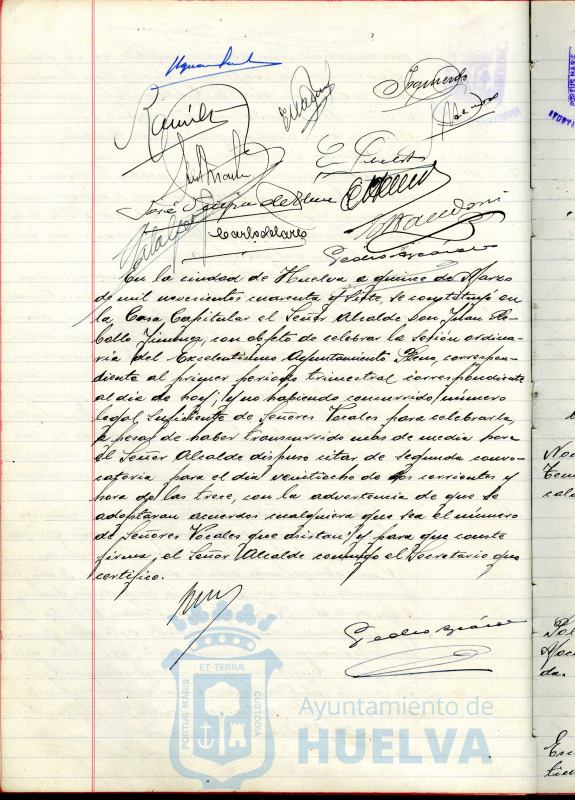 Ramírez
José
Carlos Lares
Pedro
En la ciudad de Huelva a quince de Marzo
de mil novecientos cuarenta y siete, se constituyó en
la Casa Capitular el Señor Alcalde Don Juan Re-
bollo Jimenez, con objeto de celebrar la Sesión ordina-
ria del Excelentísimo Ayuntamiento Pleno, correspon-
diente al primer periodo trimestral correspondiente
al dia de hoy; y no habiendo concurrido número
legal suficiente de Señores Vocales para celebrarla,
a pesar de haber transcurrido más de media hora
el Señor Alcalde dispuso citar de segunda convo-
catoria para el dia veintiocho de los corrientes y
hora de las trece, con la advertencia de que se
adoptaran acuerdos cualquiera que sea el número
de Señores Vocales que asistan; y para que conste
firma, el Señor Alcalde conmigo el Secretario que
certifico.
Pedro
ET TERRÆ
PORTUS MARIS
CUSTODIA
Ayuntamiento de
HUELVA